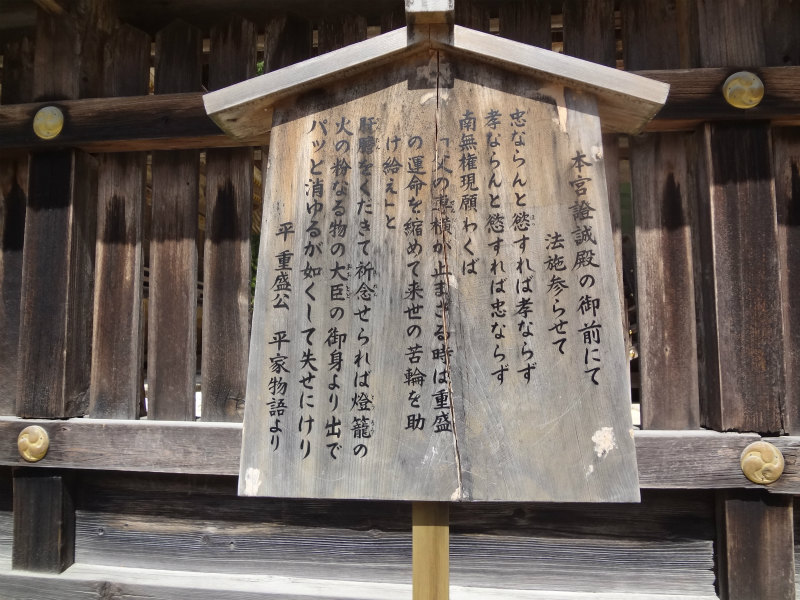 本宮證誠殿の御前にて
法施参らせて
忠ならんと慾すれば孝ならず
孝ならんと慾すれば忠ならず
南無権現願わくば
「父の専横が止まざる時は重盛
の運命を縮めて来世の苦輪を助
け給え」と
肝膽をくだきて祈念せられば燈籠の
火の粉なる物の大臣の御身より出で
パッと消ゆるが如くして失せにけり
平重盛公 平家物語より